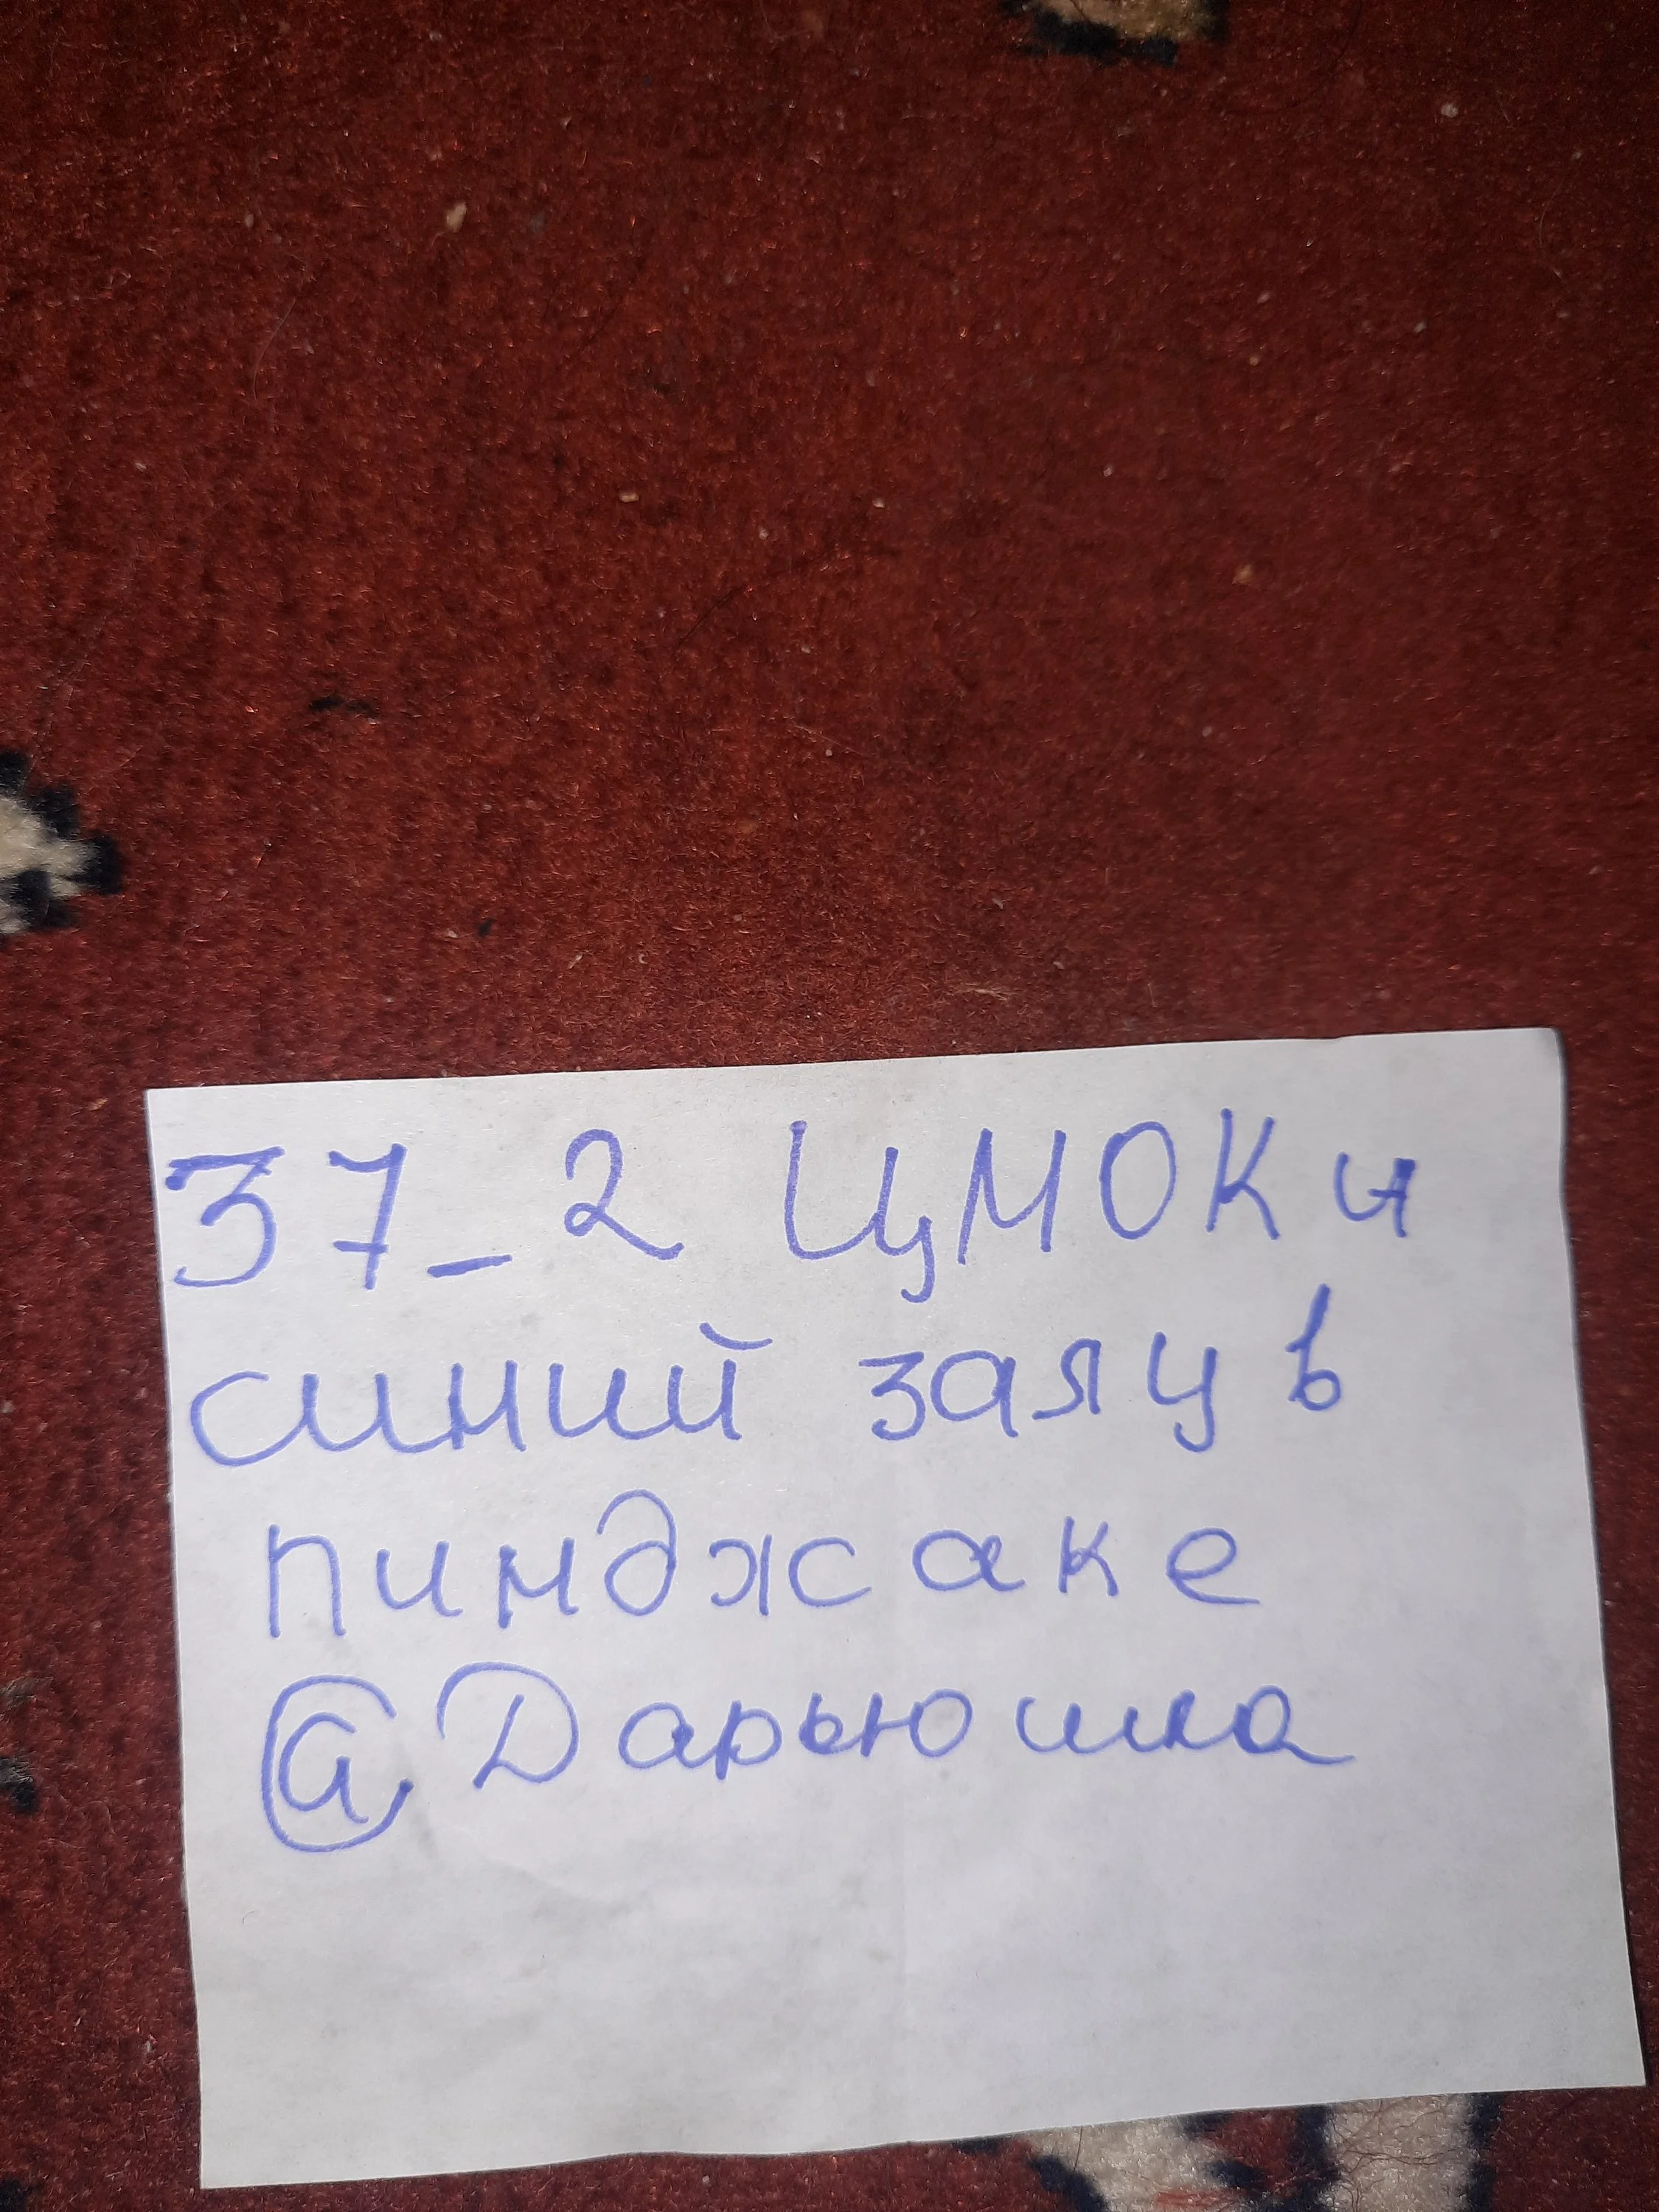 37_2 ЦМОКи
синий заяц в
пинджаке
@Дарьюшка